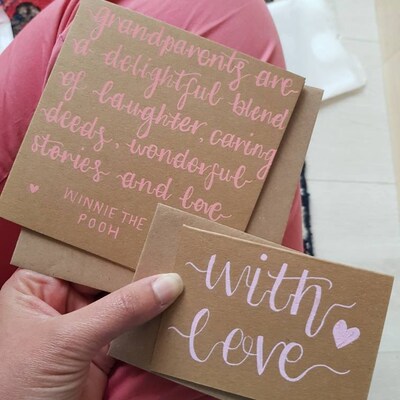 grandparents are
a delightful blend
of laughter, caring
deeds, wonderful
stories and love
WINNIE THE
POOH
with
love